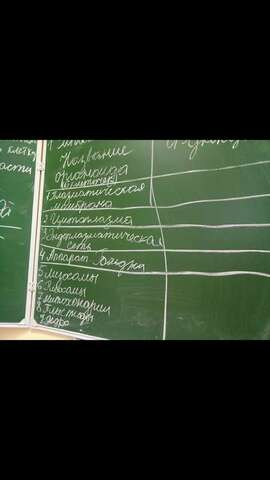 клетку
Название
органоида
1 Плазматическая
мембрана
2 Цитоплазма
3 Эндоплазматическая
сеть
4 Аппарат Гольджи
5 Лизосомы
6 Рибосомы
7 Митохондрии
8 Пластиды
9 Ядро